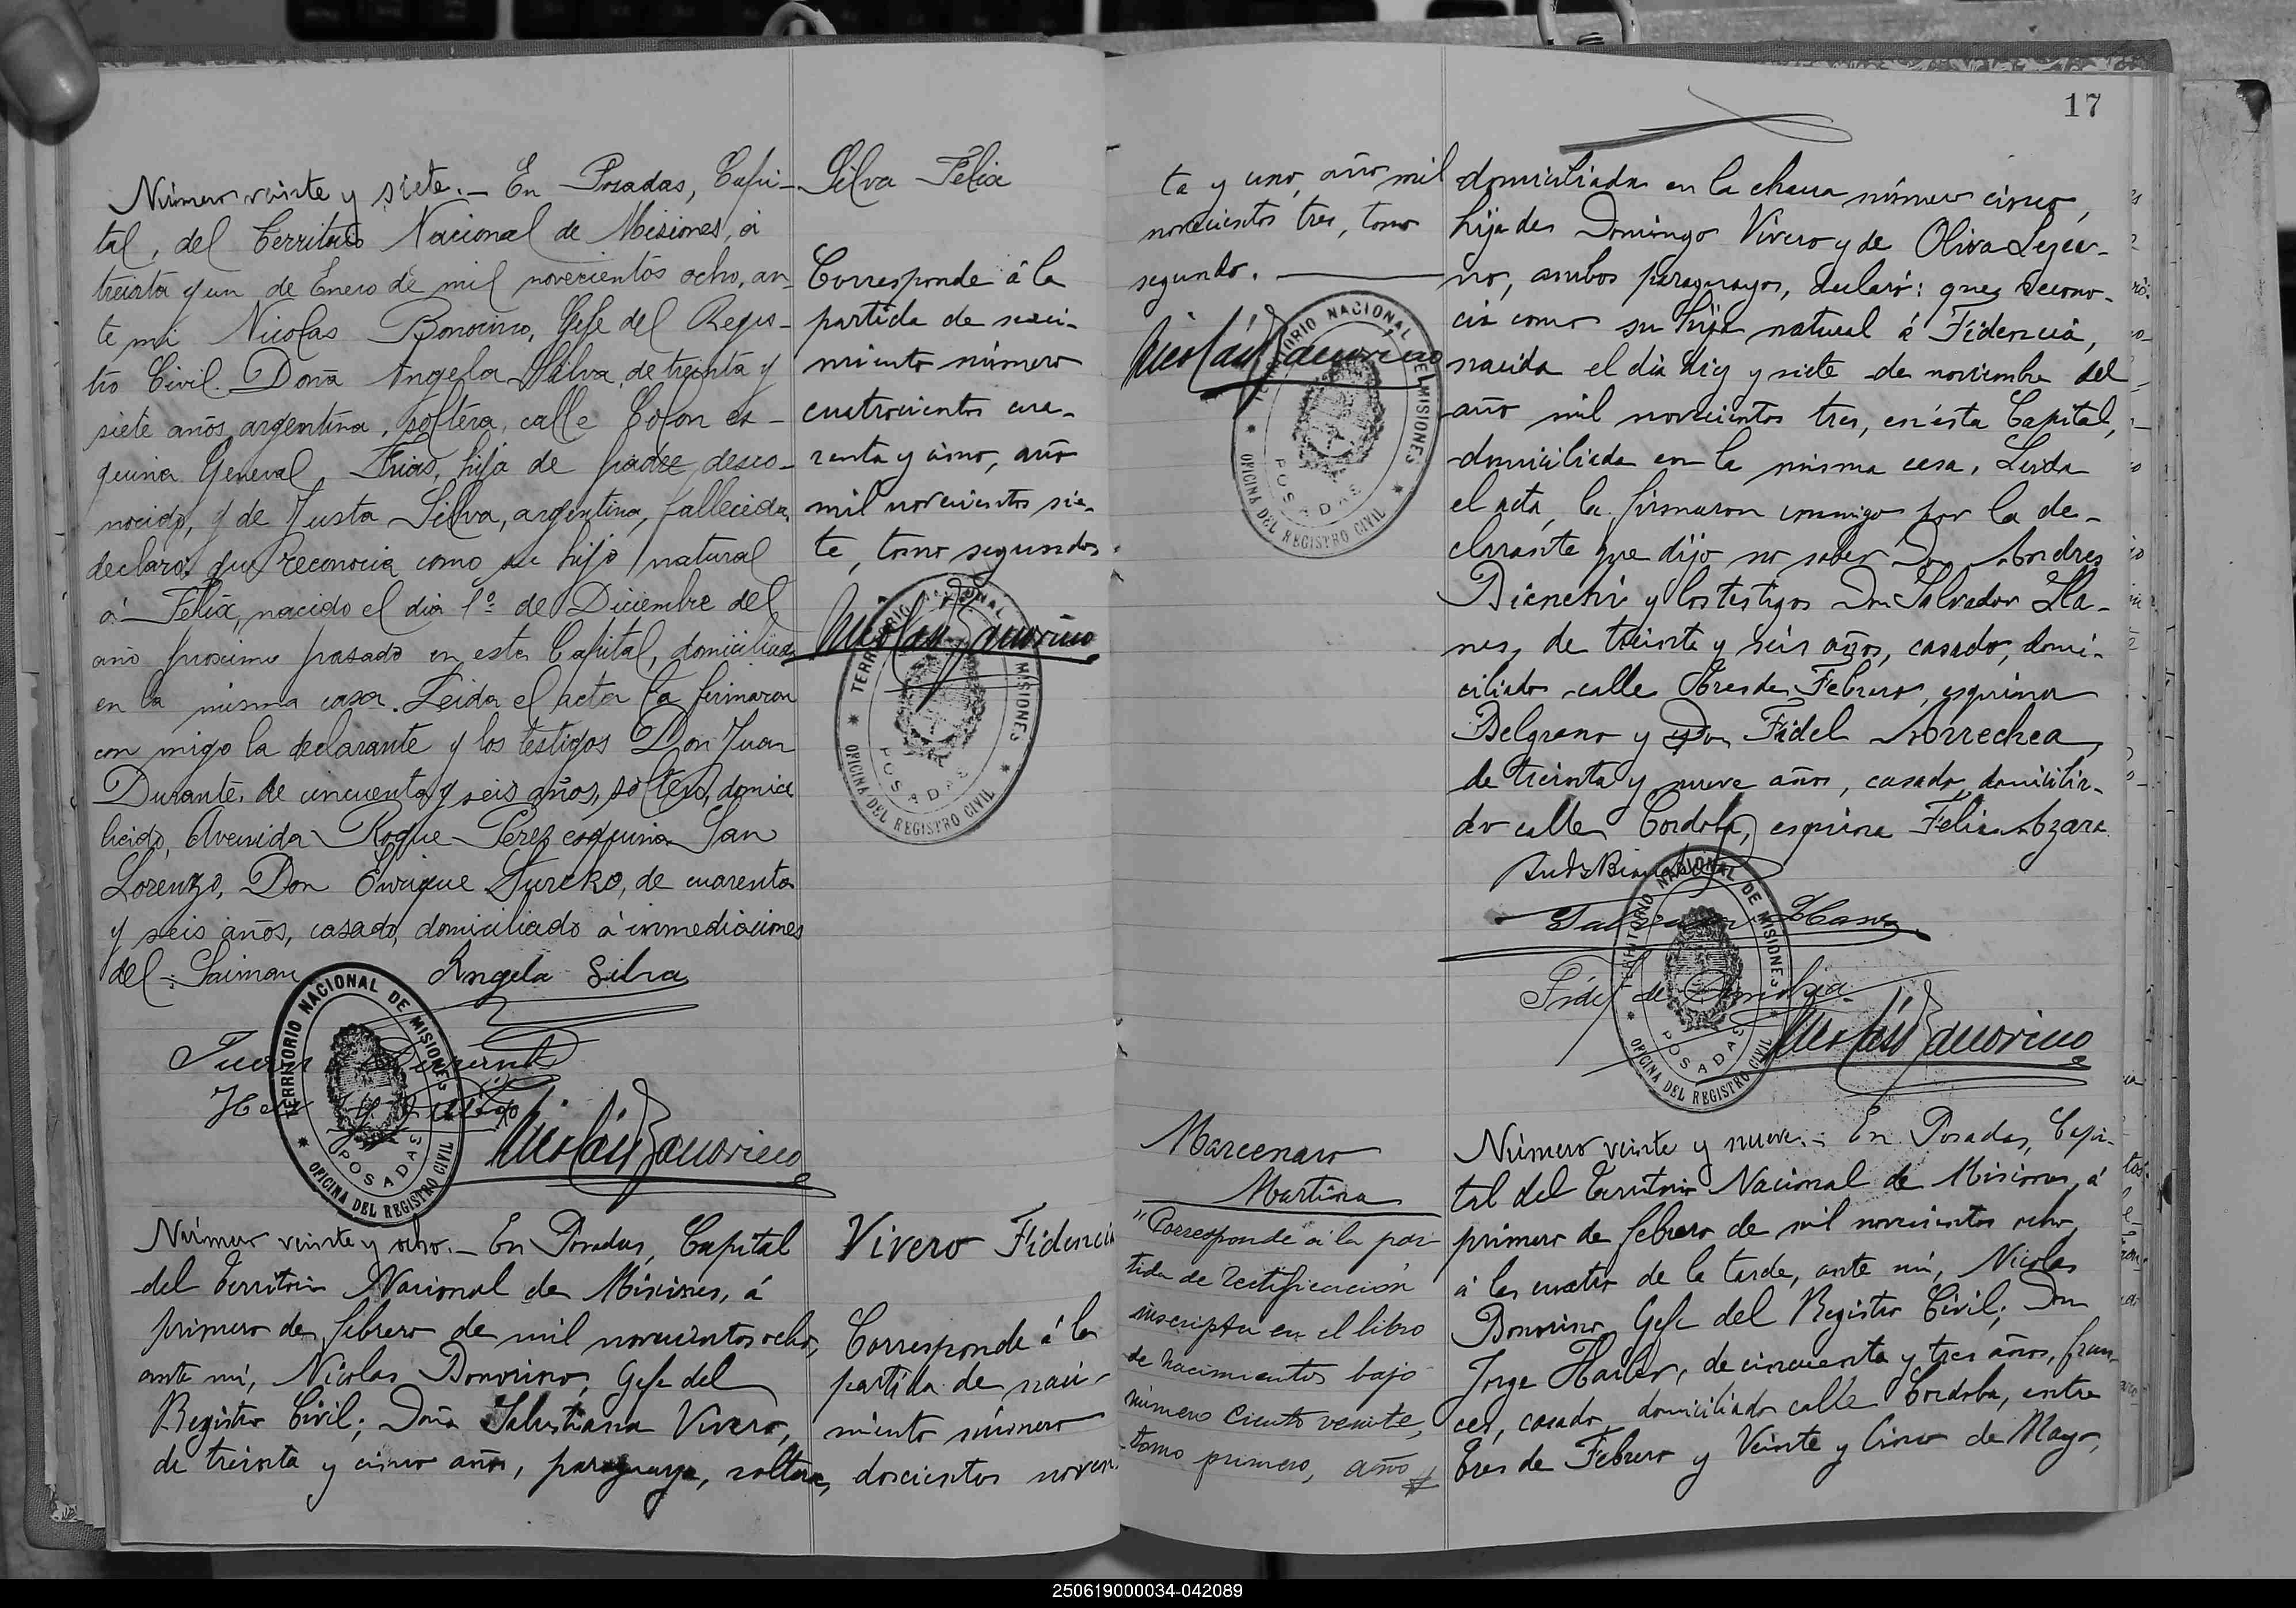 Número veinte y siete.- En Posadas, Capi-
tal, del Territorio Nacional de Misiones, á
treinta y un de Enero de mil novecientos ocho, an-
te mi Nicolas Bonorino, Gefe del Regis-
tro Civil. Doña Angela Silva, de treinta y
siete años, argentina, soltera, calle Colon es-
quina General Frias, hija de padre desco-
nocido, y de Justa Silva, argentina, fallecida,
declaró: que reconocia como su hijo natural
á Felix, nacido el dia 1º de Diciembre del
año proximo pasado en esta Capital, domiciliado
en la misma casa. Leida el acta la firmaron
con migo la declarante y los testigos Don Juan
Durante, de cincuenta y seis años, soltero, domici
liado, Avenida Roque Perez esquina San
Lorenzo, Don Enrique de cuarenta
y seis años, casado, domiciliado á inmediaciones
del
Angela Silva
Juan Durante
Nicolás Bonorino
Silva Felix
Corresponde á la
partida de naci-
miento número
cuatrocientos cua-
renta y cinco, año
mil novecientos sie-
te, tomo segundo.
Nicolás Bonorino
TERRITORIO NACIONAL DE MISIONES
POSADAS
OFICINA DEL REGISTRO CIVIL
Número veinte y ocho.- En Posadas, Capital
del Territorio Nacional de Misiones, á
primero de febrero de mil novecientos ocho,
ante mí, Nicolas Bonorino, Gefe del
Registro Civil; Doña Salustiana Vivero,
de treinta y cinco años, paraguaya, soltera,
Vivero Fidencia
Corresponde á la
partida de naci-
miento número
doscientos noven-
17
ta y uno, año mil
novecientos tres, tomo
segundo.
Nicolás Bonorino
TERRITORIO NACIONAL DE MISIONES
POSADAS
OFICINA DEL REGISTRO CIVIL
domiciliada en la chacra número cinco,
hija de Domingo Vivero y de Oliva Lezca-
no, ambos paraguayos, declaró: que recono-
cia como su hija natural á Fidencia,
nacida el dia diez y siete de noviembre del
año mil novecientos tres, en ésta Capital,
domiciliada en la misma casa. Leida
el acta, la firmaron conmigo por la de-
clarante que dijo no saber Don Andres
Bianchi y los testigos Don Salvador Lla-
nes, de treinta y seis años, casado, domi-
ciliado calle Tres de Febrero, esquina
Belgrano y Don Fidel Arrechea,
de treinta y nueve años, casado, domicilia-
do calle Cordoba, esquina Felix Azara.
Nicolás Bonorino
TERRITORIO NACIONAL DE MISIONES
POSADAS
OFICINA DEL REGISTRO CIVIL
Marcenaro
Martina
"Corresponde á la par-
tida de rectificación
inscripta en el libro
de nacimientos bajo
número ciento veinte,
tomo primero, año
Número veinte y nueve.- En Posadas, Capi-
tal del Territorio Nacional de Misiones, á
primero de febrero de mil novecientos ocho,
á las cuatro de la tarde, ante mí, Nicolas
Bonorino, Gefe del Registro Civil; Don
Jorge de cincuenta y tres años, fran-
ces, casado, domiciliado calle Cordoba, entre
Tres de Febrero y Veinte y Cinco de Mayo,
250619000034-042089